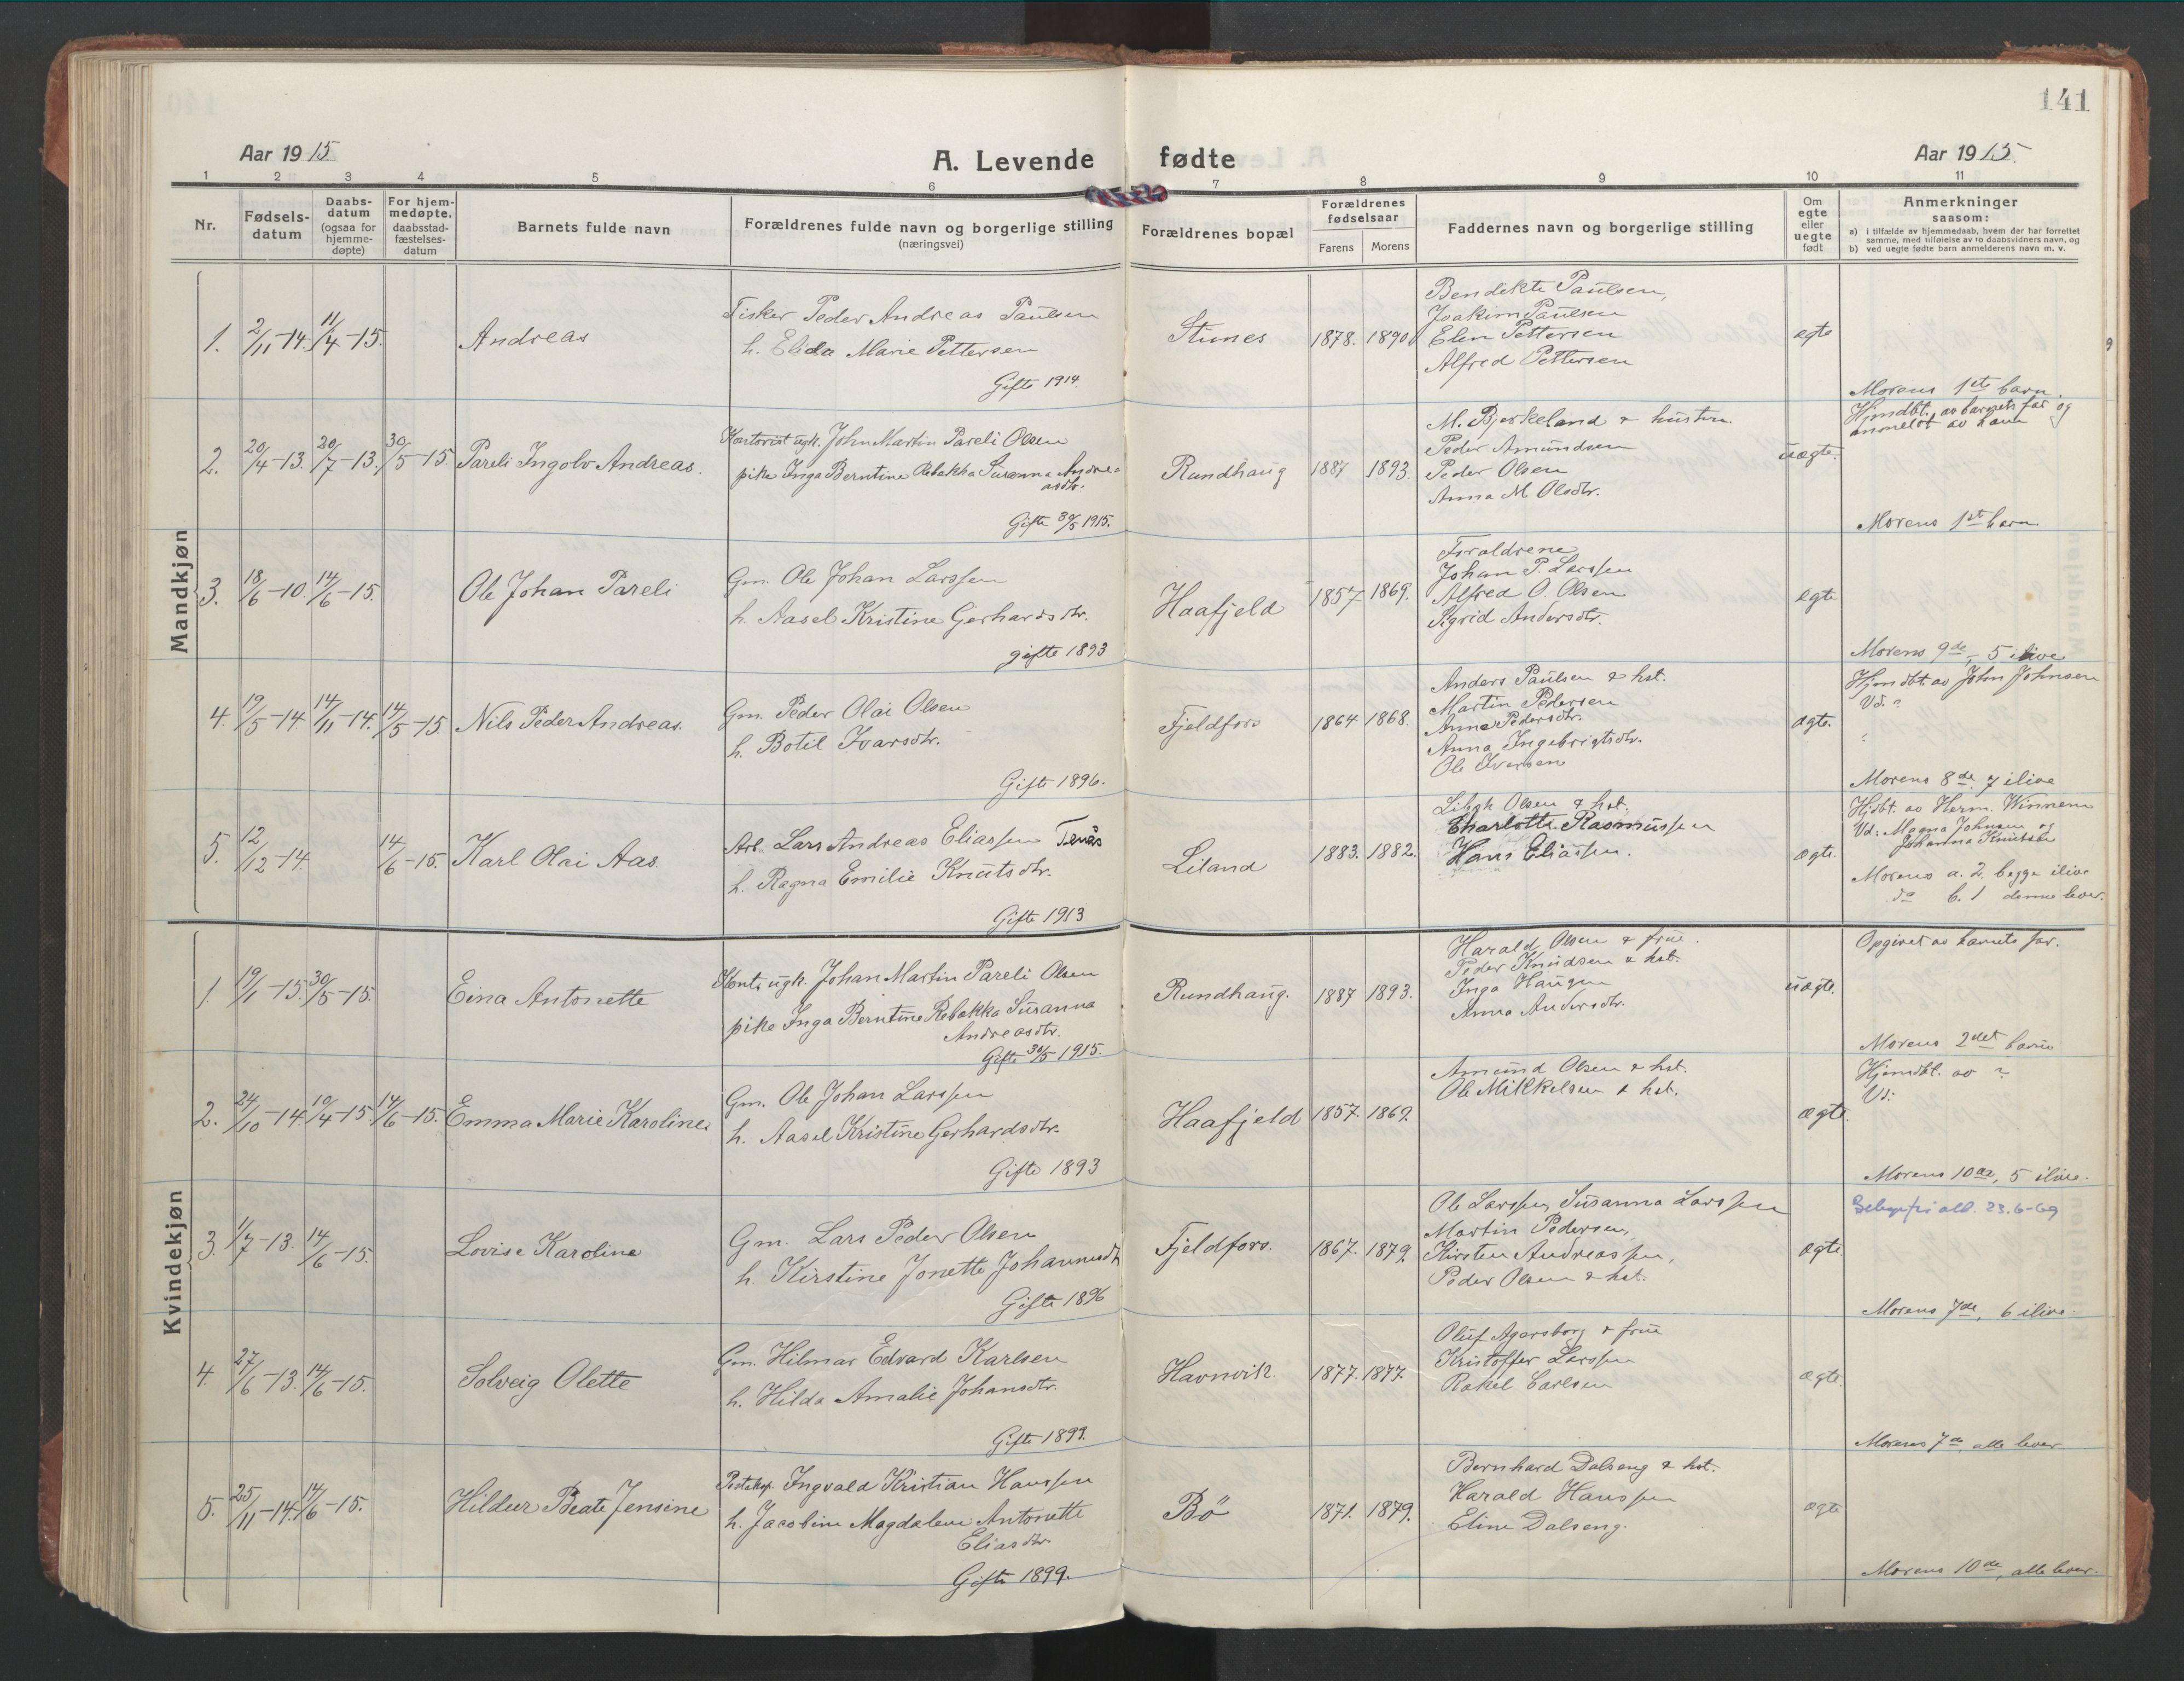 141
Aar 1915
A. Levende fødte
Aar 1915.
1 2 3 4 5 6 7 8 9 10 11
Nr.
Fødsels-
datum
Daabs-
datum
(ogsaa for
hjemme-
døpte)
For hjem-
medøpte,
daabsstad-
fæstelses-
datum
Barnets fulde navn
Forældrenes fulde navn og borgerlige stilling
(næringsvei)
Forældrenes bopæl
Forældrenes
fødselsaar
Farens Morens
Faddernes navn og borgerlige stilling
Om
egte
eller
uegte
født
Anmerkninger
saasom:
a) i tilfælde av hjemmedaab, hvem der har forrettet
samme, med tilføielse av to daabsvidners navn, og
b) ved uegte fødte barn anmelderens navn m. v.
Mandkjøn
1. 2/11-14. 11/4-15. Andreas
Fisker Peder Andreas Paulsen
h. Elida Marie Pettersen
Gifte 1914.
1878. 1890
Bendikte Paulsen,
Joakim Paulsen
Elen Pettersen
Alfred Pettersen
egte
Morens 1ste barn.
2. 20/4-13. 20/7-13. 30/5-15. Pareli Ingolv Andreas.
Kontorist ugk. John Martin Pareli Olsen
pike Inga Berntine Rebekka Susanna Andre-
asdtr.
Gifte 30/5 1915.
Rundhaug
1887 1893.
M. Bjerkeland & hustru.
Peder Amundsen
Peder Olsen
Anna M Olsdtr.
uægte.
Hjmdbt. av barnets far og
anmeldt av ham
Morens 1st barn.
3. 18/6-10. 14/6-15. Ole Johan Pareli
Gm. Ole Johan Larssen
h. Aasel Kristine Gerhardsdtr.
gifte 1893
Haafjeld
1857 1869.
Foraldrene
Johan P. Larssen
Alfred O. Olsen
Sigrid Andersdtr.
egte
Morens 9de, 5 ilive
4. 19/5-14. 14/11-14. 14/5-15. Nils Peder Andreas.
Gm. Peder Olai Olsen
h. Botil Ivarsdtr.
Gifte 1896.
Fjeldfors
1864 1868.
Anders Paulsen & hst.
Martin Pedersen
Anne Pedersdtr.
Anna Ingebrigtsdtr.
Ole Iversen
ægte.
Hjemdbt. av John Johnsen
Vd. ?
Morens 8de. 7 ilive
5. 12/12-14. 14/6-15. Karl Olai Aas.
Arb. Lars Andreas Eliassen Tenås
h. Ragna Emilie Knutsdtr.
Gifte 1913
Liland
1883. 1882.
Olsen & hst.
Charlotte Rasmussen
Hans Eliassen.
ægte.
Hjdbt. av Herm. Winnem
Vd: Magna Johnsen og
Johanna Knutsen
Morens a. 2. begge ilive
do b. 1 denne lever.
Kvindekjøn
1. 19/1-15. 30/5-15. Eina Antonette
Kont. ugk. Johan Martin Pareli Olsen
pike Inga Berntine Rebekka Susanna
Andreasdtr.
Gifte 30/5 1915.
Rundhaug.
1887 1893.
Harald Olsen & frue.
Peder Knudsen & hst.
Inga Haugen
Anna Andersdtr.
uægte.
Opgivet av barnets far.
Morens 2det barn
2. 24/10-14. 19/4-15 14/6-15. Emma Marie Karoline.
Gm. Ole Johan Larssen
h. Aasel Kristine Gerhardsdtr.
Gifte 1893
Haafjeld
1857. 1869.
Amund Olsen & hst.
Ole Mikkelsen & hst.
ægte.
Hjemdbt. av ?
Vd:
Morens 10de, 5 ilive.
3. 1/7-13. 14/6-15. Lovise Karoline
Gm. Lars Peder Olsen
h. Kirstine Jonette Johannesdt
Gifte 1896
Fjeldfors.
1867. 1879.
Ole Larssen, Susanna Larssen
Martin Pedersen,
Kirsten Andreassen,
Peder Olsen & hst.
ægte
23.6-69
Morens 7de, 6 ilive.
4. 27/6-13. 14/6-15. Solveig Olette
Gm. Hilmar Edvard Karlsen
h. Hilda Amalie Johansdtr.
Gifte 1899.
Havnvik.
1877. 1877
Oluf Agersborg & frue
Kristoffer Larssen
Rakel Carlsen
ægte.
Morens 7de, alle lever
5. 25/11-14. 14/6-15. Hildur Beate Jensine
Posteksp. Ingvald Kristian Hanssen
h. Jacobine Magdalene Antonette
Eliasdtr.
Gifte 1899.
Bö
1871. 1879.
Bernhard Dalseng & hst.
Harald Hanssen
Eline Dalseng.
ægte
Morens 10de, alle lever.